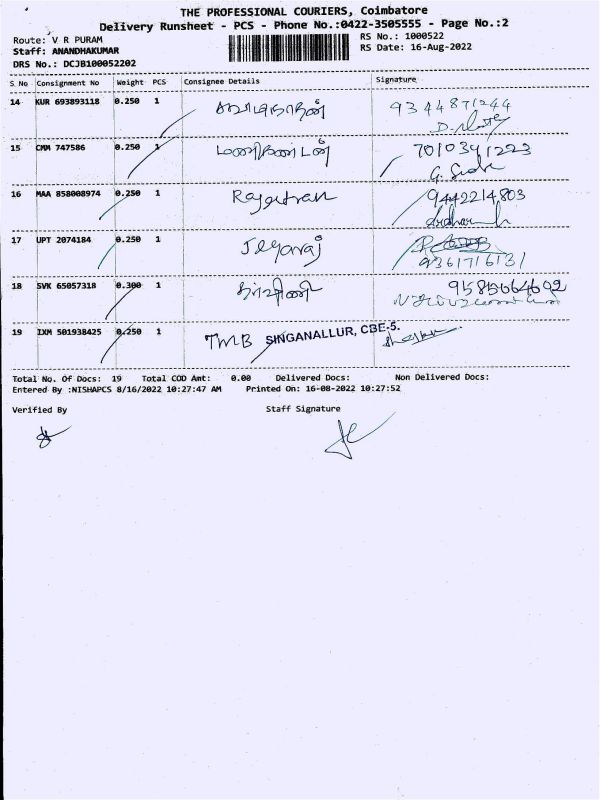 THE PROFESSIONAL COURIERS, Coimbatore
Delivery Runsheet - PCS - Phone No.:0422-3505555 - Page No.:2
Route: V R PURAM
RS No.: 1000522
Staff: ANANDHAKUMAR
RS Date: 16-Aug-2022
DRS No.: DCJB100052202
S No Consignment No Weight PCS Consignee Details Signature
14 KUR 693893118 0.250 1 9344871244
15 CMM 747586 0.250 1 மணிகண்டன் 7010341223
16 MAA 858008974 0.250 1 9442214803
17 UPT 2074184 0.250 1 Jeyaraj
9361716131
18 SVK 65057318 0.300 1
19 IXM 501938425 0.250 1 TMB SINGANALLUR, CBE-5.
Total No. Of Docs: 19 Total COD Amt: 0.00 Delivered Docs: Non Delivered Docs:
Entered By :NISHAPCS 8/16/2022 10:27:47 AM Printed On: 16-08-2022 10:27:52
Verified By Staff Signature